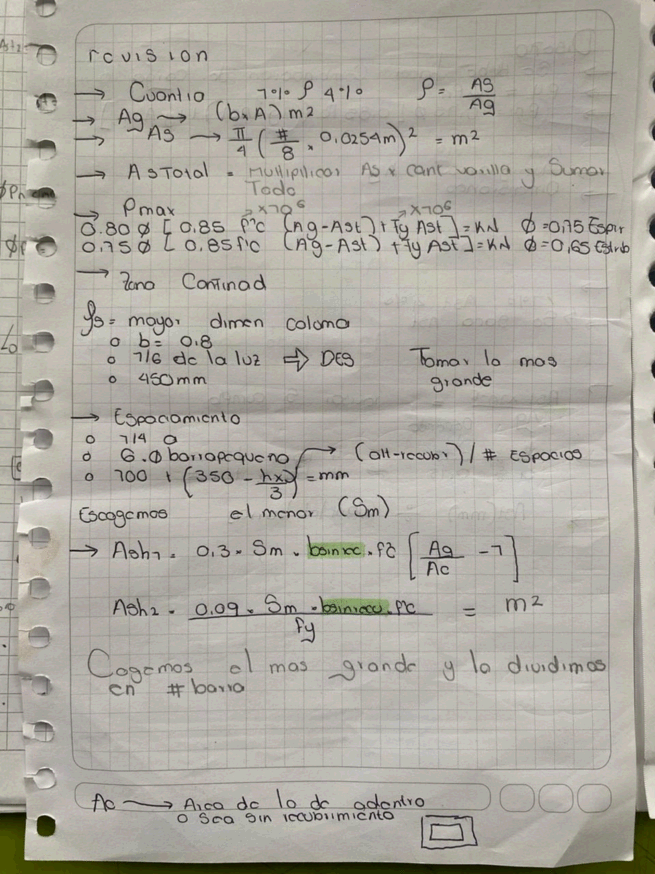 revision
→ Cuantia 1% ρ 4% ρ = As/Ag
→ Ag → (b×A) m2
→ As → π/4 (#/8 · 0,0254m)² = m²
→ AsTotal = Multiplicar As x cant varilla y Sumar
Todo
→ Pmax →×10⁶ →×10⁶
0.80 Ø [0.85 f'c (Ag-Ast) + fy Ast] = KN Ø =0,75 Espir
0.75 Ø [0.85 f'c (Ag-Ast) + fy Ast] = KN Ø=0,65 Estrib
→ Zona Confinad
Lo= mayor dimen coloma
○ b= 0.8
○ 1/6 de la luz ⇒ DES Tomar la mas
○ 450mm grande
→ Espaciamiento
○ 1/4 a
○ 6.Ø barra pequeño → (alt-recubr)/# ESPACIOS
○ 100 + (350 - hx/3) = mm
Escogemos el menor (Sm)
→ Ash1 = 0.3 · Sm · bsinrec · f'c [Ag/Ac - 1]
Ash2 = 0.09 · Sm · bsinrecu · f'c / fy = m²
Cogemos el mas grande y lo dividimos
en # barra
Ac → Area de lo de adentro
o sea sin recubrimiento